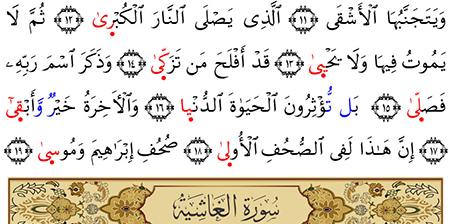 وَيَتَجَنَّبُهَا الْأَشْقَى ﴿١١﴾ الَّذِي يَصْلَى النَّارَ الْكُبْرَىٰ ﴿١٢﴾ ثُمَّ لَا
يَمُوتُ فِيهَا وَلَا يَحْيَىٰ ﴿١٣﴾ قَدْ أَفْلَحَ مَن تَزَكَّىٰ ﴿١٤﴾ وَذَكَرَ اسْمَ رَبِّهِۦ
فَصَلَّىٰ ﴿١٥﴾ بَل تُّؤْثِرُونَ الْحَيَوٰةَ الدُّنْيَا ﴿١٦﴾ وَالْآخِرَةُ خَيْرٌ وَّأَبْقَىٰٓ
﴿١٧﴾ إِنَّ هَـٰذَا لَفِى الصُّحُفِ الْأُولَىٰ ﴿١٨﴾ صُحُفِ إِبْرَاهِيمَ وَمُوسَىٰ ﴿١٩﴾
سُورَةُ الْغَاشِيَةِ